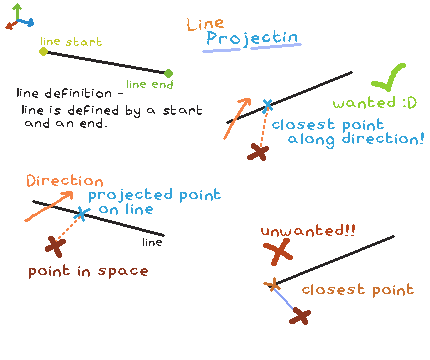 Line
Projectin
line start
line end
line definition -
line is defined by a start
and an end.
wanted :D
closest point
along direction!
Direction
projected point
on line
line
point in space
unwanted!!
closest point